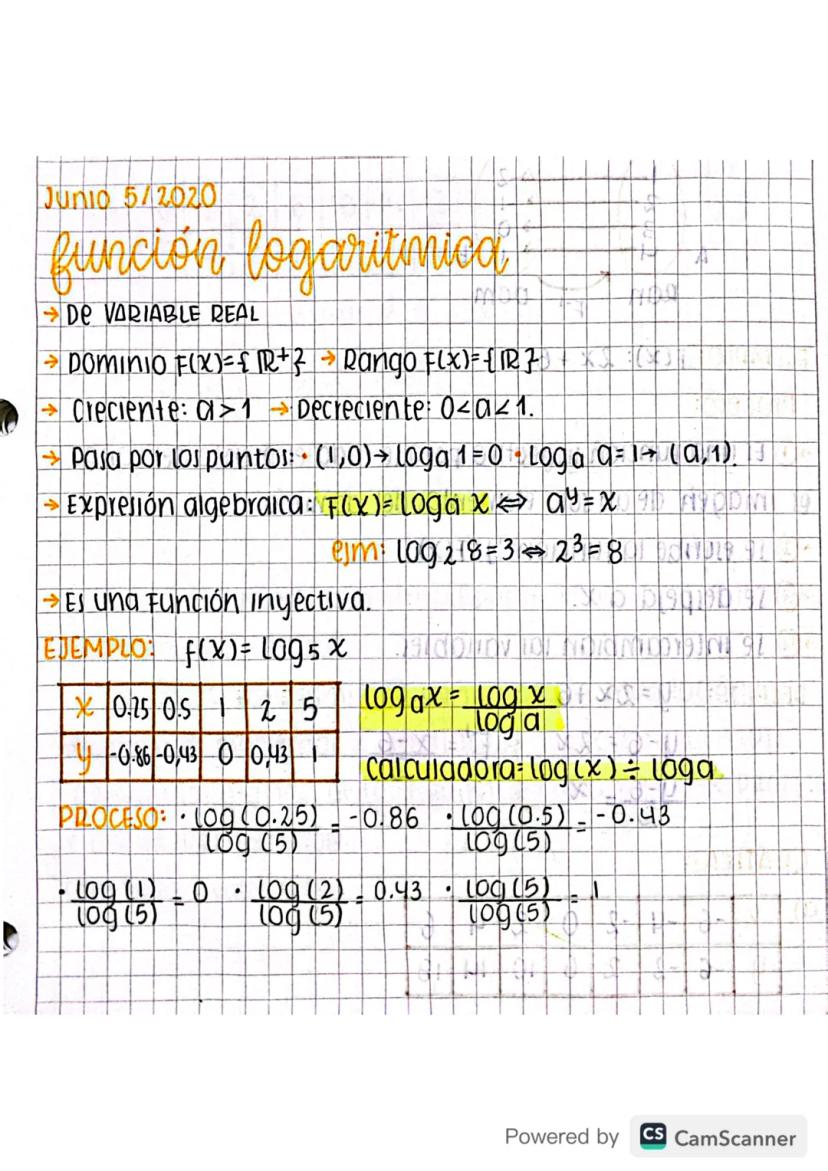 Junio 5/2020
función logaritmica
→ De VARIABLE REAL
→ Dominio F(x)={ℝ⁺} → Rango F(x)={ℝ}
→ Creciente: a>1 → Decreciente: 0<a<1.
→ Pasa por los puntos: • (1,0)→ Loga 1=0 • Loga a=1→ (a,1).
→ Expresión algebraica: F(x)= Loga x ⇔ a^y = x
ejm: Log 2 8=3 ⇔ 2³=8
→ Es una Función inyectiva.
EJEMPLO: f(x)= Log5 x
x 0.25 0.5 1 2 5
y -0.86 -0,43 0 0,43 1
log a x = log x / log a
Calculadora= log(x) ÷ Loga
PROCESO: • Log(0.25) / Log(5) = -0.86 • Log(0.5) / Log(5) = -0.43
• Log(1) / Log(5) = 0 • Log(2) / Log(5) = 0.43 • Log(5) / Log(5) = 1
Powered by CS CamScanner